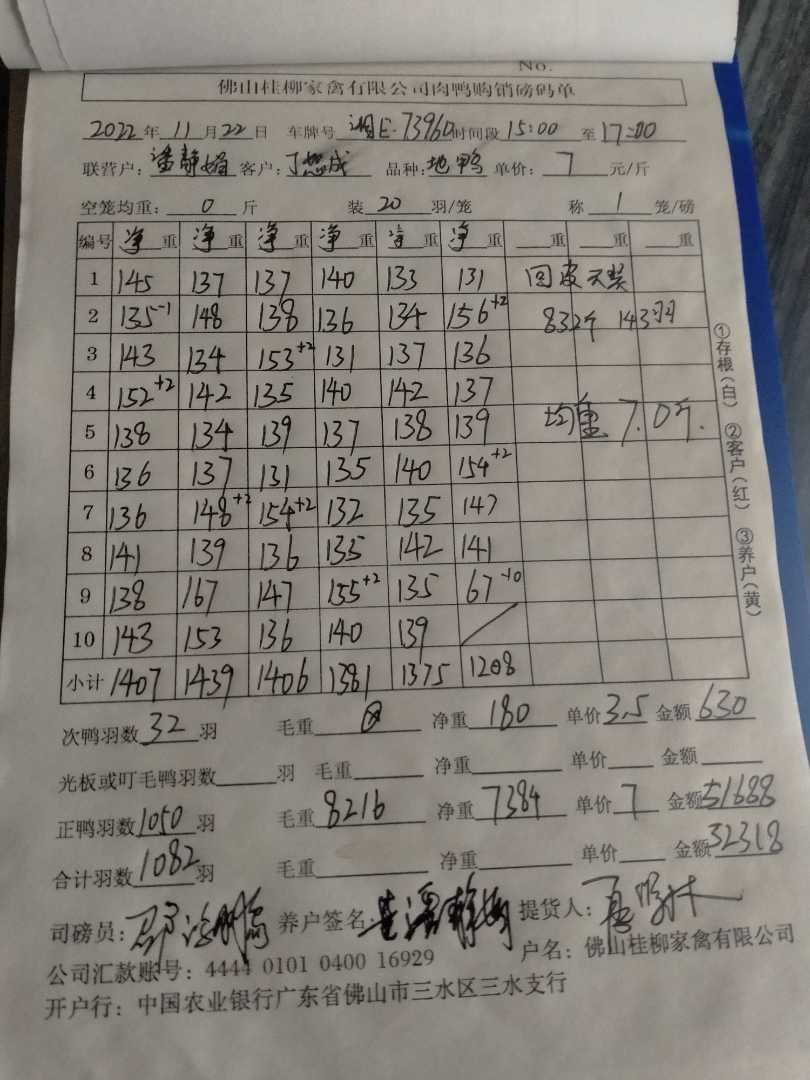 No.
佛山桂柳家禽有限公司肉鸭购销磅码单
2022年11月22日 车牌号 湘E·7396D 时间段 15:00 至 17:00
联营户:潘静娟 客户: 品种:地鸭 单价:7 元/斤
空笼均重:0 斤 装 20 羽/笼 称 1 笼/磅
编号 净重 净重 净重 净重 净重 净重 重 重 重
1 145 137 137 140 133 131 回皮
2 135-1 148 138 136 134 156+2 832斤 143羽
3 143 134 153+2 131 137 136
4 152+2 142 135 140 142 137
5 138 134 139 137 138 139 均重 7.0斤.
6 136 137 131 135 140 154+2
7 136 148+2 154+2 132 135 147
8 141 139 136 135 142 141
9 138 167 147 155+2 135 67-10
10 143 153 136 140 139
小计 1407 1439 1406 1381 1375 1208
①存根(白) ②客户(红) ③养户(黄)
次鸭羽数 32 羽 毛重 净重 180 单价 3.5 金额 630
光板或叮毛鸭羽数 羽 毛重 净重 单价 金额
正鸭羽数 1050 羽 毛重 8216 净重 7384 单价 7 金额 51688
合计羽数 1082 羽 毛重 净重 单价 金额 52318
司磅员: 养户签名: 潘静娟 提货人:
公司汇款账号:4444 0101 0400 16929 户名:佛山桂柳家禽有限公司
开户行:中国农业银行广东省佛山市三水区三水支行